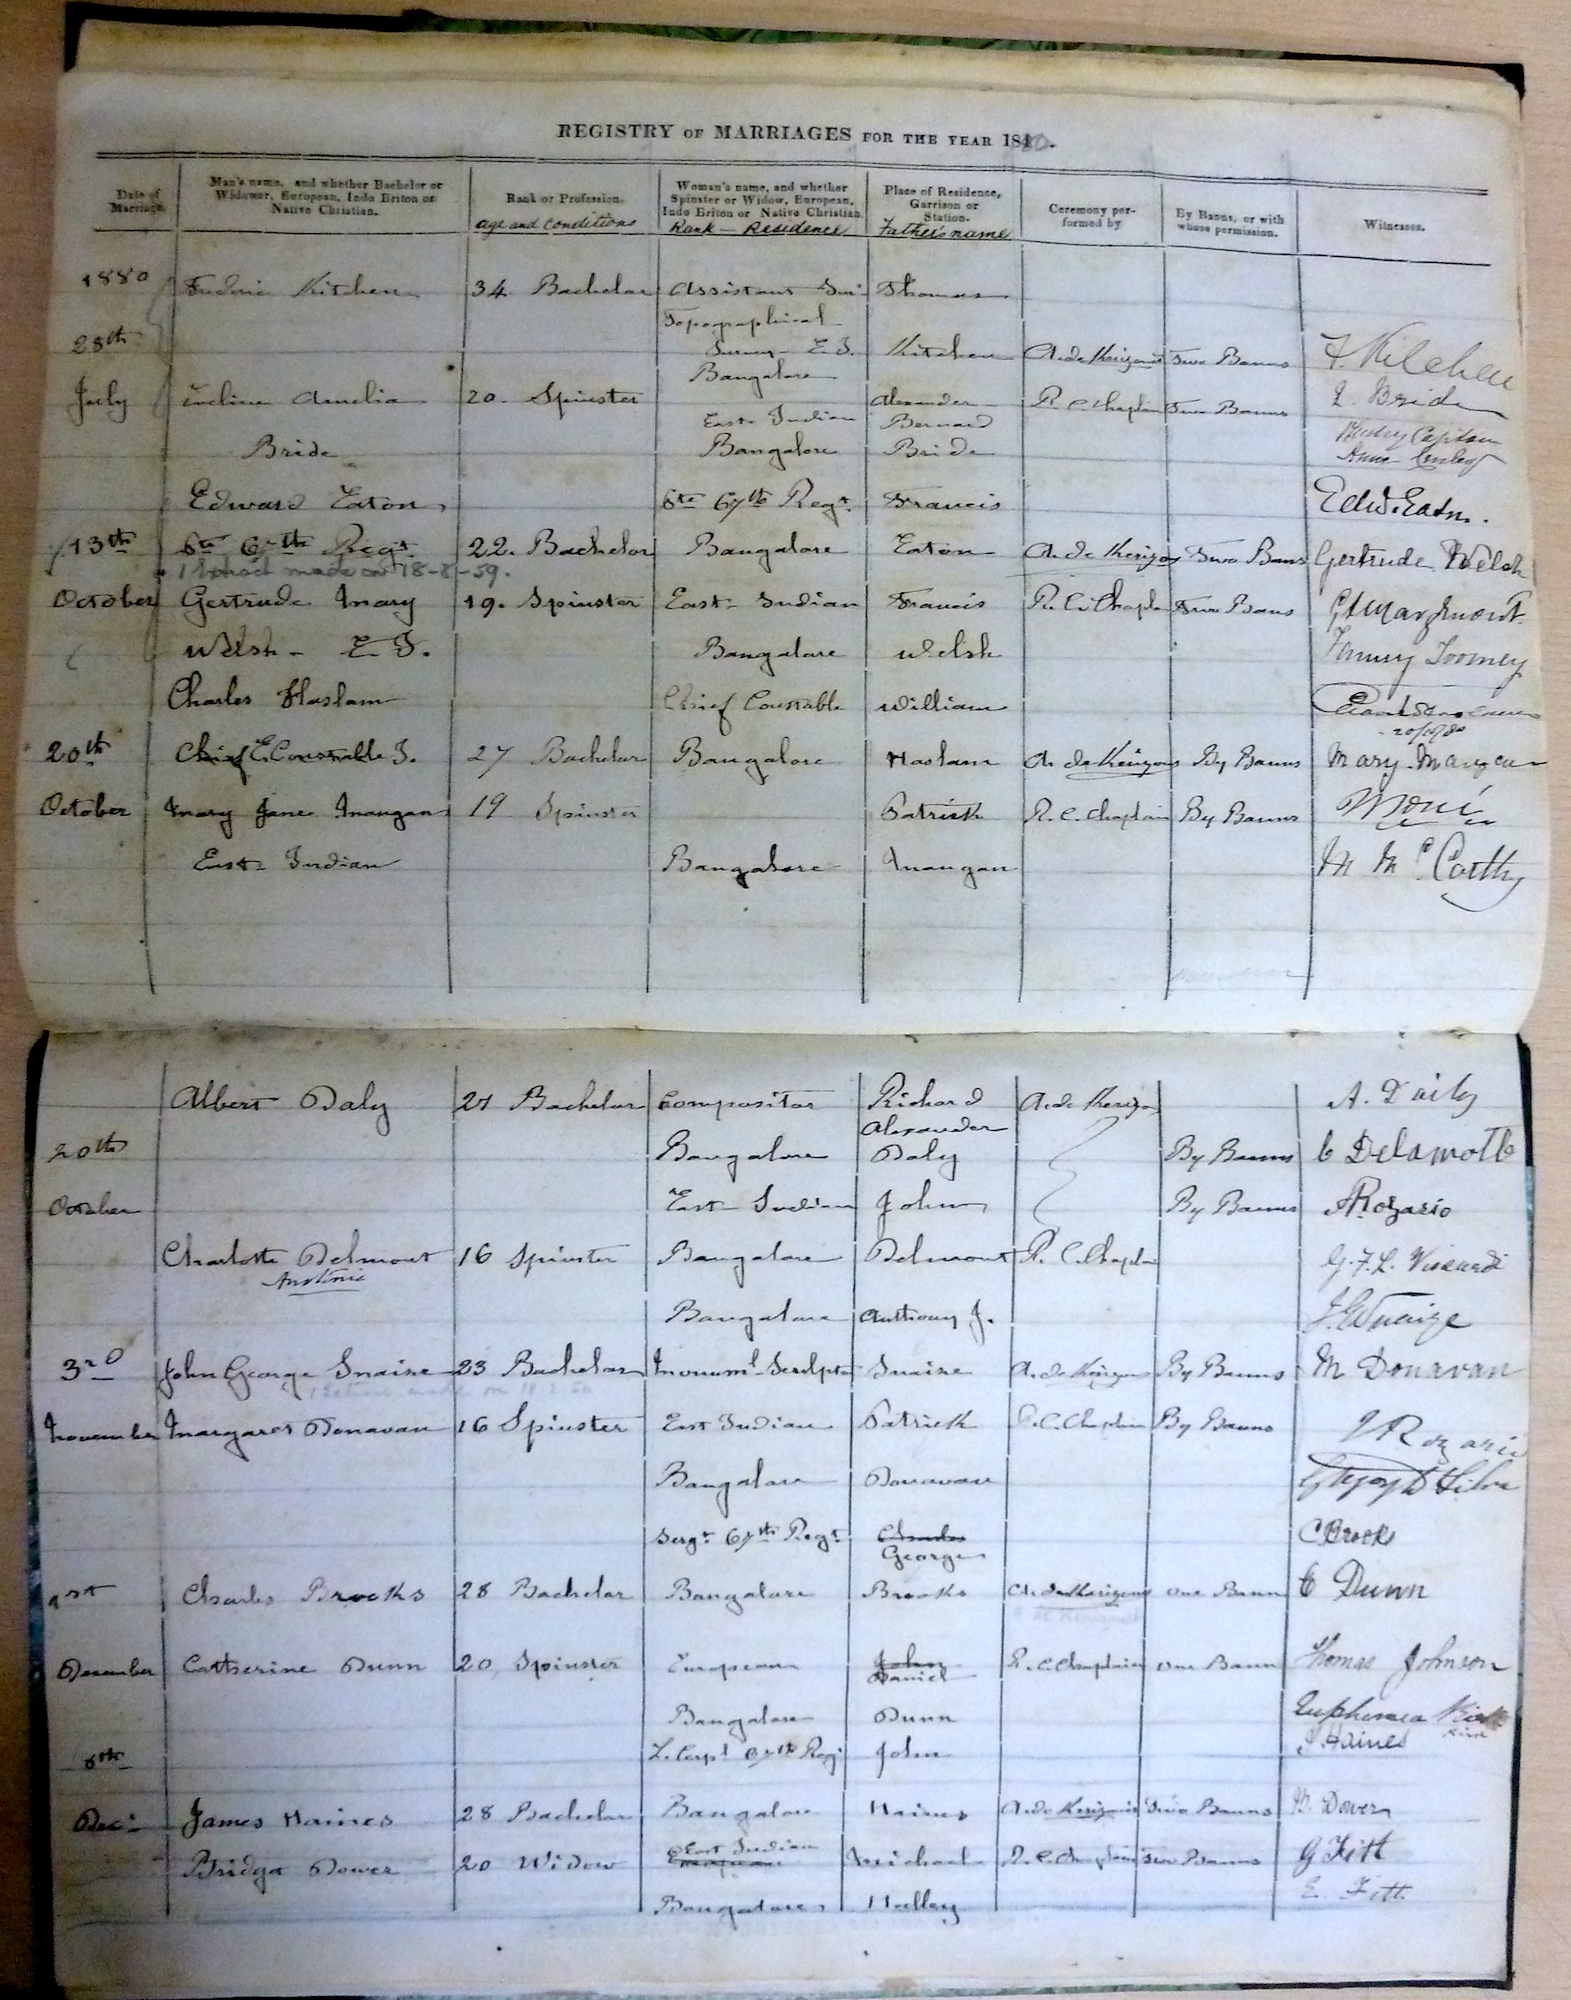 REGISTRY OF MARRIAGES FOR THE YEAR 18
Date of Marriage.
Man's name, and whether Bachelor or Widower, European, Indo Briton or Native Christian.
Rank or Profession.
age and conditions
Woman's name, and whether Spinster or Widow, European, Indo Briton or Native Christian.
Rank - Residence
Place of Residence, Garrison or Station.
Father's name
Ceremony performed by
By Banns, or with whose permission.
Witnesses.
1880 Frederic Kitchen 34. Bachelor Assistant Thomas
Topographical
28th Survey - E. I. Kitchen Two Banns F. Kitchen
Bangalore
July Eveline Amelia 20. Spinster Alexander R. C. Chaplain Two Banns Bride
East Indian Bernard
Bride Bangalore Bride
Edward Eaton 67th Regt. Francis Edwd. Eaton.
13th 67th Regt. 22. Bachelor Bangalore Eaton Two Bans Gertrude Welsh
made on 18-8-59.
October Gertrude Mary 19. Spinster East Indian Francis R. C. Chapla Two Bans
Welsh - E I. Bangalore Welsh Fanny Toomey
Charles Haslam Chief Constable William
20/10/80
20th Chief Constable E. I. 27 Bachelor Bangalore Haslam By Banns Mary Mangan
October Mary Jane Mangan 19 Spinster Patrick R. C. Chaplain By Banns
East Indian Bangalore Mangan M McCarthy
Albert Daly 27 Bachelor Compositor Richard A. Daily
Alexander
20th Bangalore Daly By Banns C Delamotte
October East Indian John By Banns Rozario
Charlotte Delmont 16 Spinster Bangalore Delmont R. C. Chaplain G. F. L.
Bangalore Anthony J.
3rd John George Snaize 23 Bachelor Monuml. Sculptor Snaize By Banns M Donavan
November Margaret Donavan 16 Spinster East Indian Patrick R. C. Chaplain By Banns Rozario
Bangalore Donavan
Sergt 67th Regt. Charles C Brooks
George
1st Charles Brooks 28 Bachelor Bangalore Brooks One Bann C Dunn
December Catherine Dunn 20 Spinster European John R. C. Chaplain One Bann Thomas Johnson
Daniel
Bangalore Dunn Euphemea
L. Corpl 67th Regt John J Haines
Decr James Haines 28 Bachelor Bangalore Haines Two Banns B. Dower
East Indian
Bridget Dower 20 Widow European Michael R. C. Chaplain Two Banns G Fitt
Bangalore Hulley E. Fitt